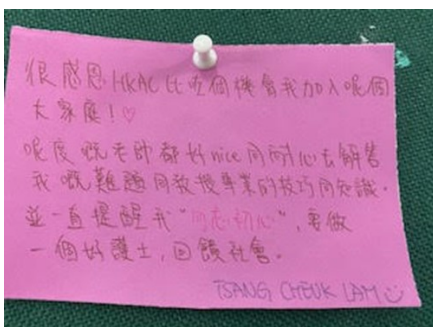 很感恩HKAC比咗個機會我加入呢個
大家庭!♡
呢度嘅老師都好nice同耐心去解答
我嘅難題同教授專業的技巧同知識.
並一直提醒我"勿忘初心",要做
一個好護士,回饋社會.
TSANG CHEUK LAM